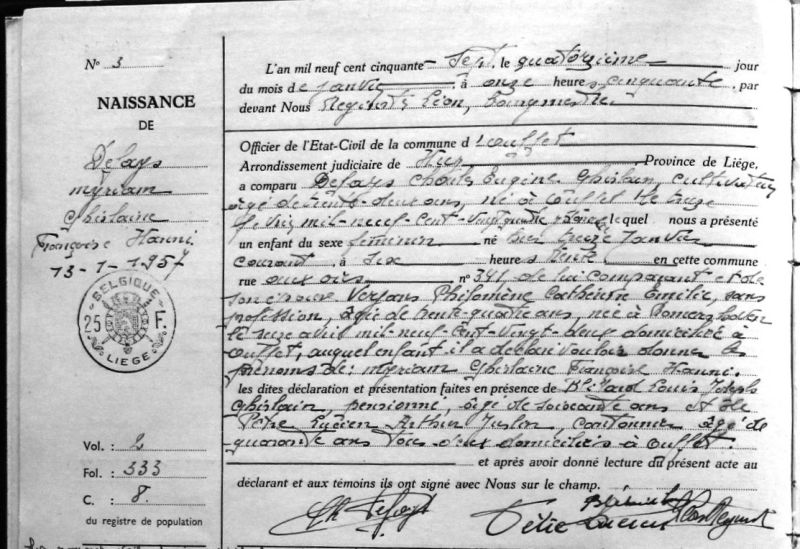 N° 3
NAISSANCE
DE
Delays
Myriam
Ghislaine
Françoise Hanni
13-1-1957
BELGIQUE
25 F.
LIEGE
Vol. : 2
Fol. : 333
C. : 8.
du registre de population
L'an mil neuf cent cinquante-sept, le quatorzième jour
du mois de janvier, à onze heures cinquante, par
devant Nous Léon, bourgmestre
Officier de l'Etat-Civil de la commune d'Ouffet
Arrondissement judiciaire de Huy, Province de Liége,
a comparu Delays Charles Eugène Ghislain, cultivateur
âgé de trente-deux ans, né à Ouffet le treize
mil-neuf-cent-vingt-quatre lequel nous a présenté
un enfant du sexe féminin né hier treize janvier
courant, à six heures trente, en cette commune
rue aux oies n° 341, de lui comparant et de
son épouse Philomène Catherine Emilie, sans
profession, âgée de trente-quatre ans, née à
le seize avril mil-neuf-cent-vingt-deux domiciliée à
Ouffet, auquel enfant il a déclaré vouloir donner les
prénoms de: Myriam Ghislaine Françoise Hanni.
les dites déclaration et présentation faites en présence de Louis Joseph
Ghislain, pensionné, âgé de soixante ans et de
Lucien Arthur, cantonnier âgé de
quarante ans tous deux domiciliés à Ouffet.
et après avoir donné lecture du présent acte au
déclarant et aux témoins ils ont signé avec Nous sur le champ.